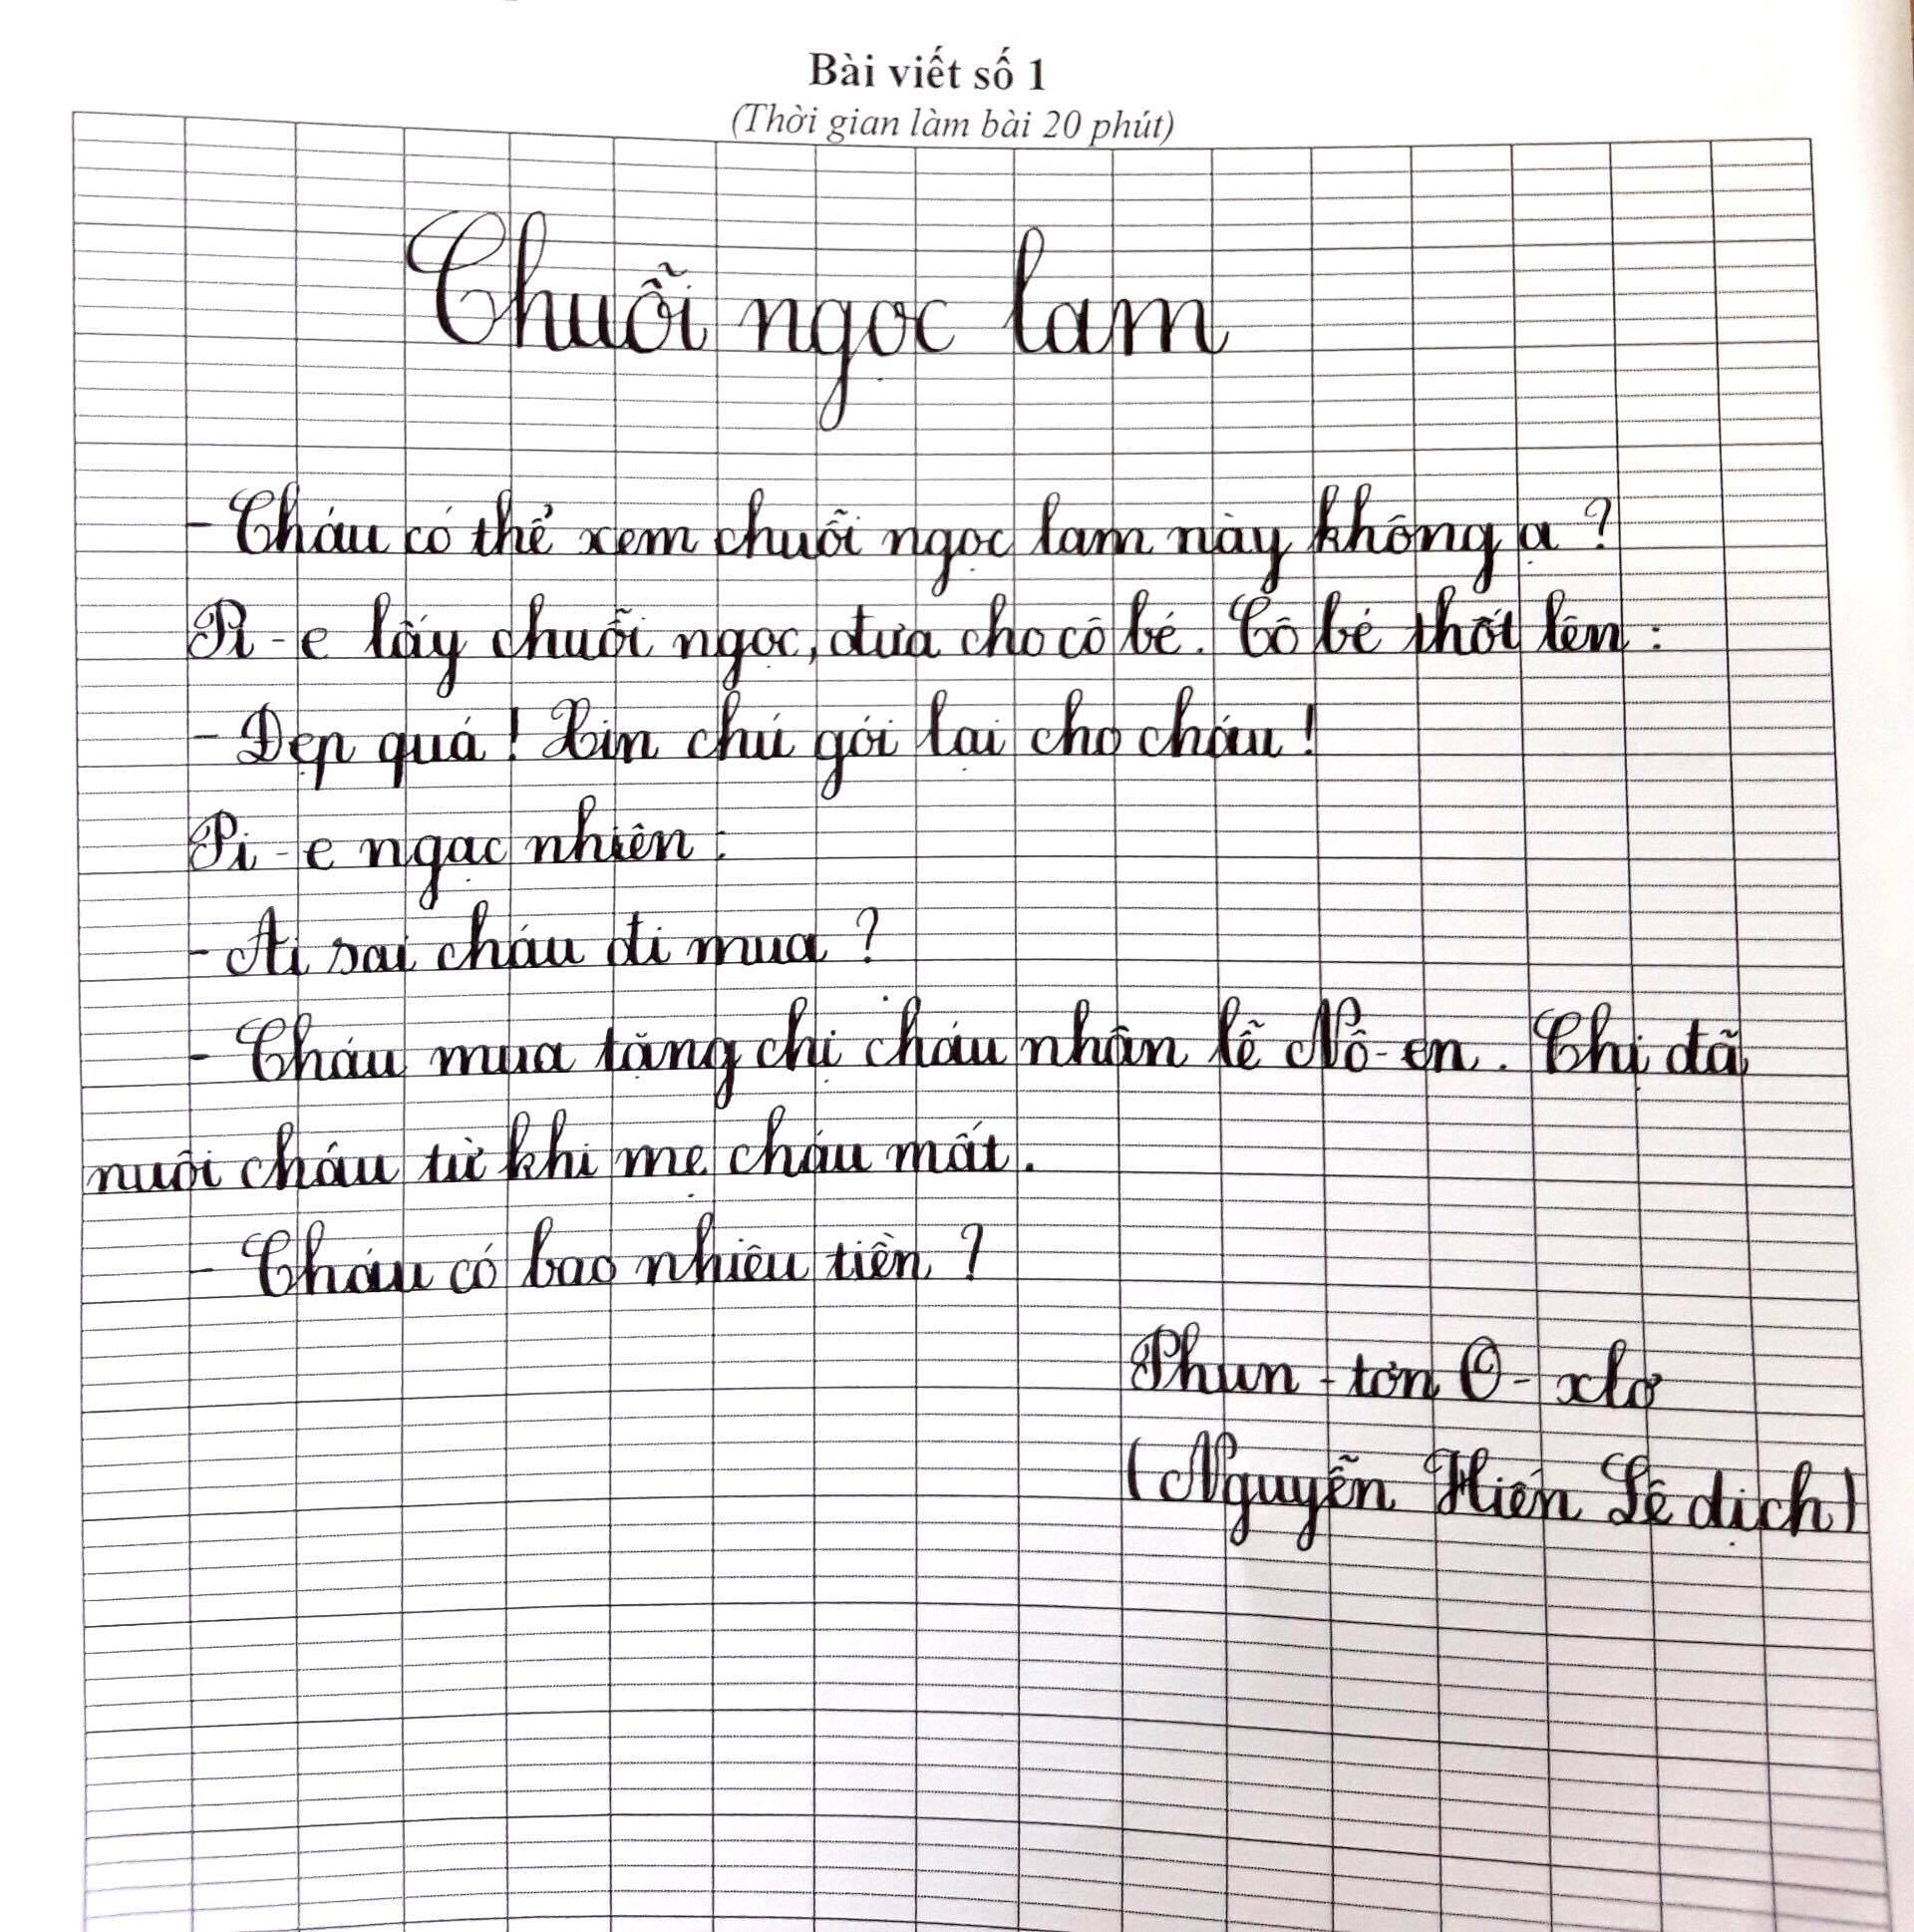 Bài viết số 1
(Thời gian làm bài 20 phút)
Chuỗi ngọc lam
- Cháu có thể xem chuỗi ngọc lam này không ạ ?
Pi-e lấy chuỗi ngọc, đưa cho cô bé. Cô bé thốt lên :
- Đẹp quá ! Xin chú gói lại cho cháu !
Pi-e ngạc nhiên :
- Ai sai cháu đi mua ?
- Cháu mua tặng chị cháu nhân lễ Nô-en. Chị đã
nuôi cháu từ khi mẹ cháu mất.
- Cháu có bao nhiêu tiền ?
Phun - tơn O- xlơ
(Nguyễn Hiến Lê dịch)